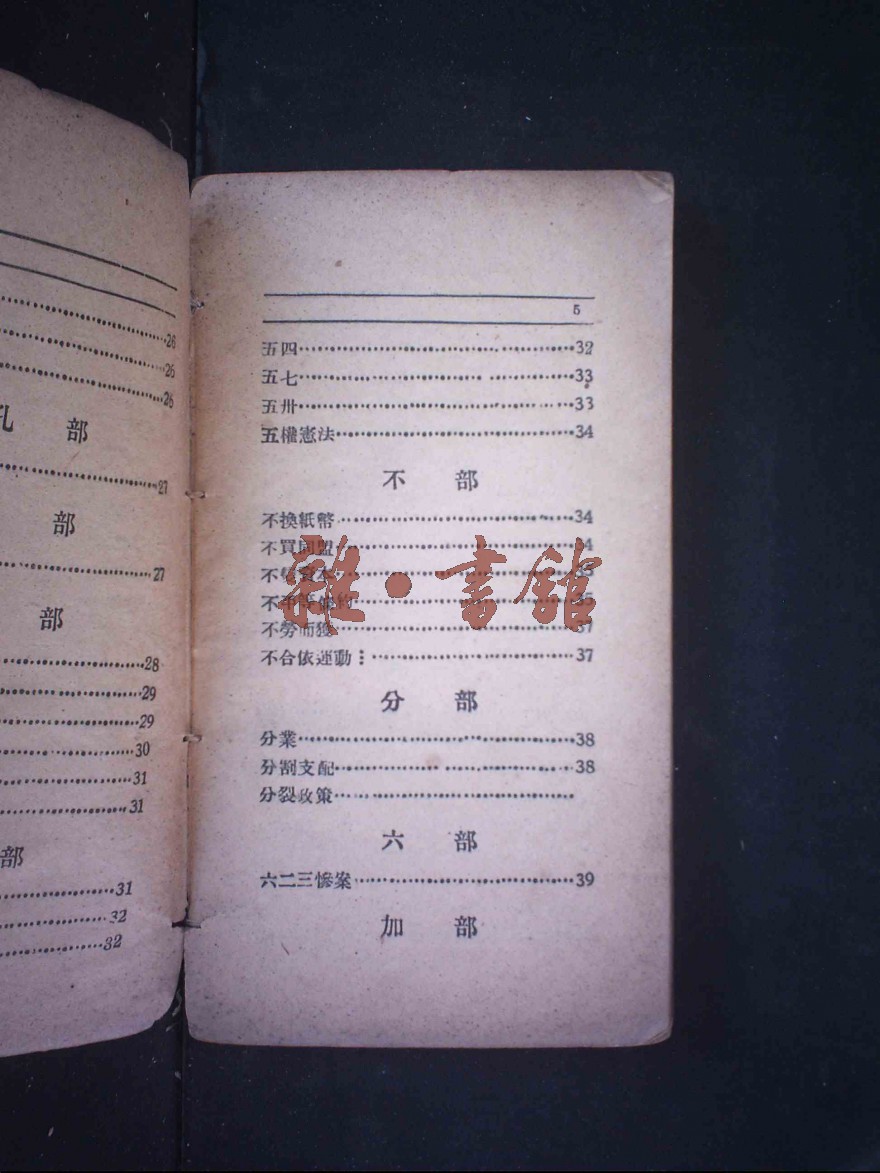 26
26
26
孔 部
27
部
27
部
28
29
29
30
31
31
部
31
32
32
5
五四……32
五七……33
五卅……33
五權憲法……34
不 部
不換紙幣……34
不買同盟……34
不變資本……
不平等條約……35
不勞而獲……37
不合依運動……37
分 部
分業……38
分割支配……38
分裂政策……
六 部
六二三慘案……39
加 部
雜·書館